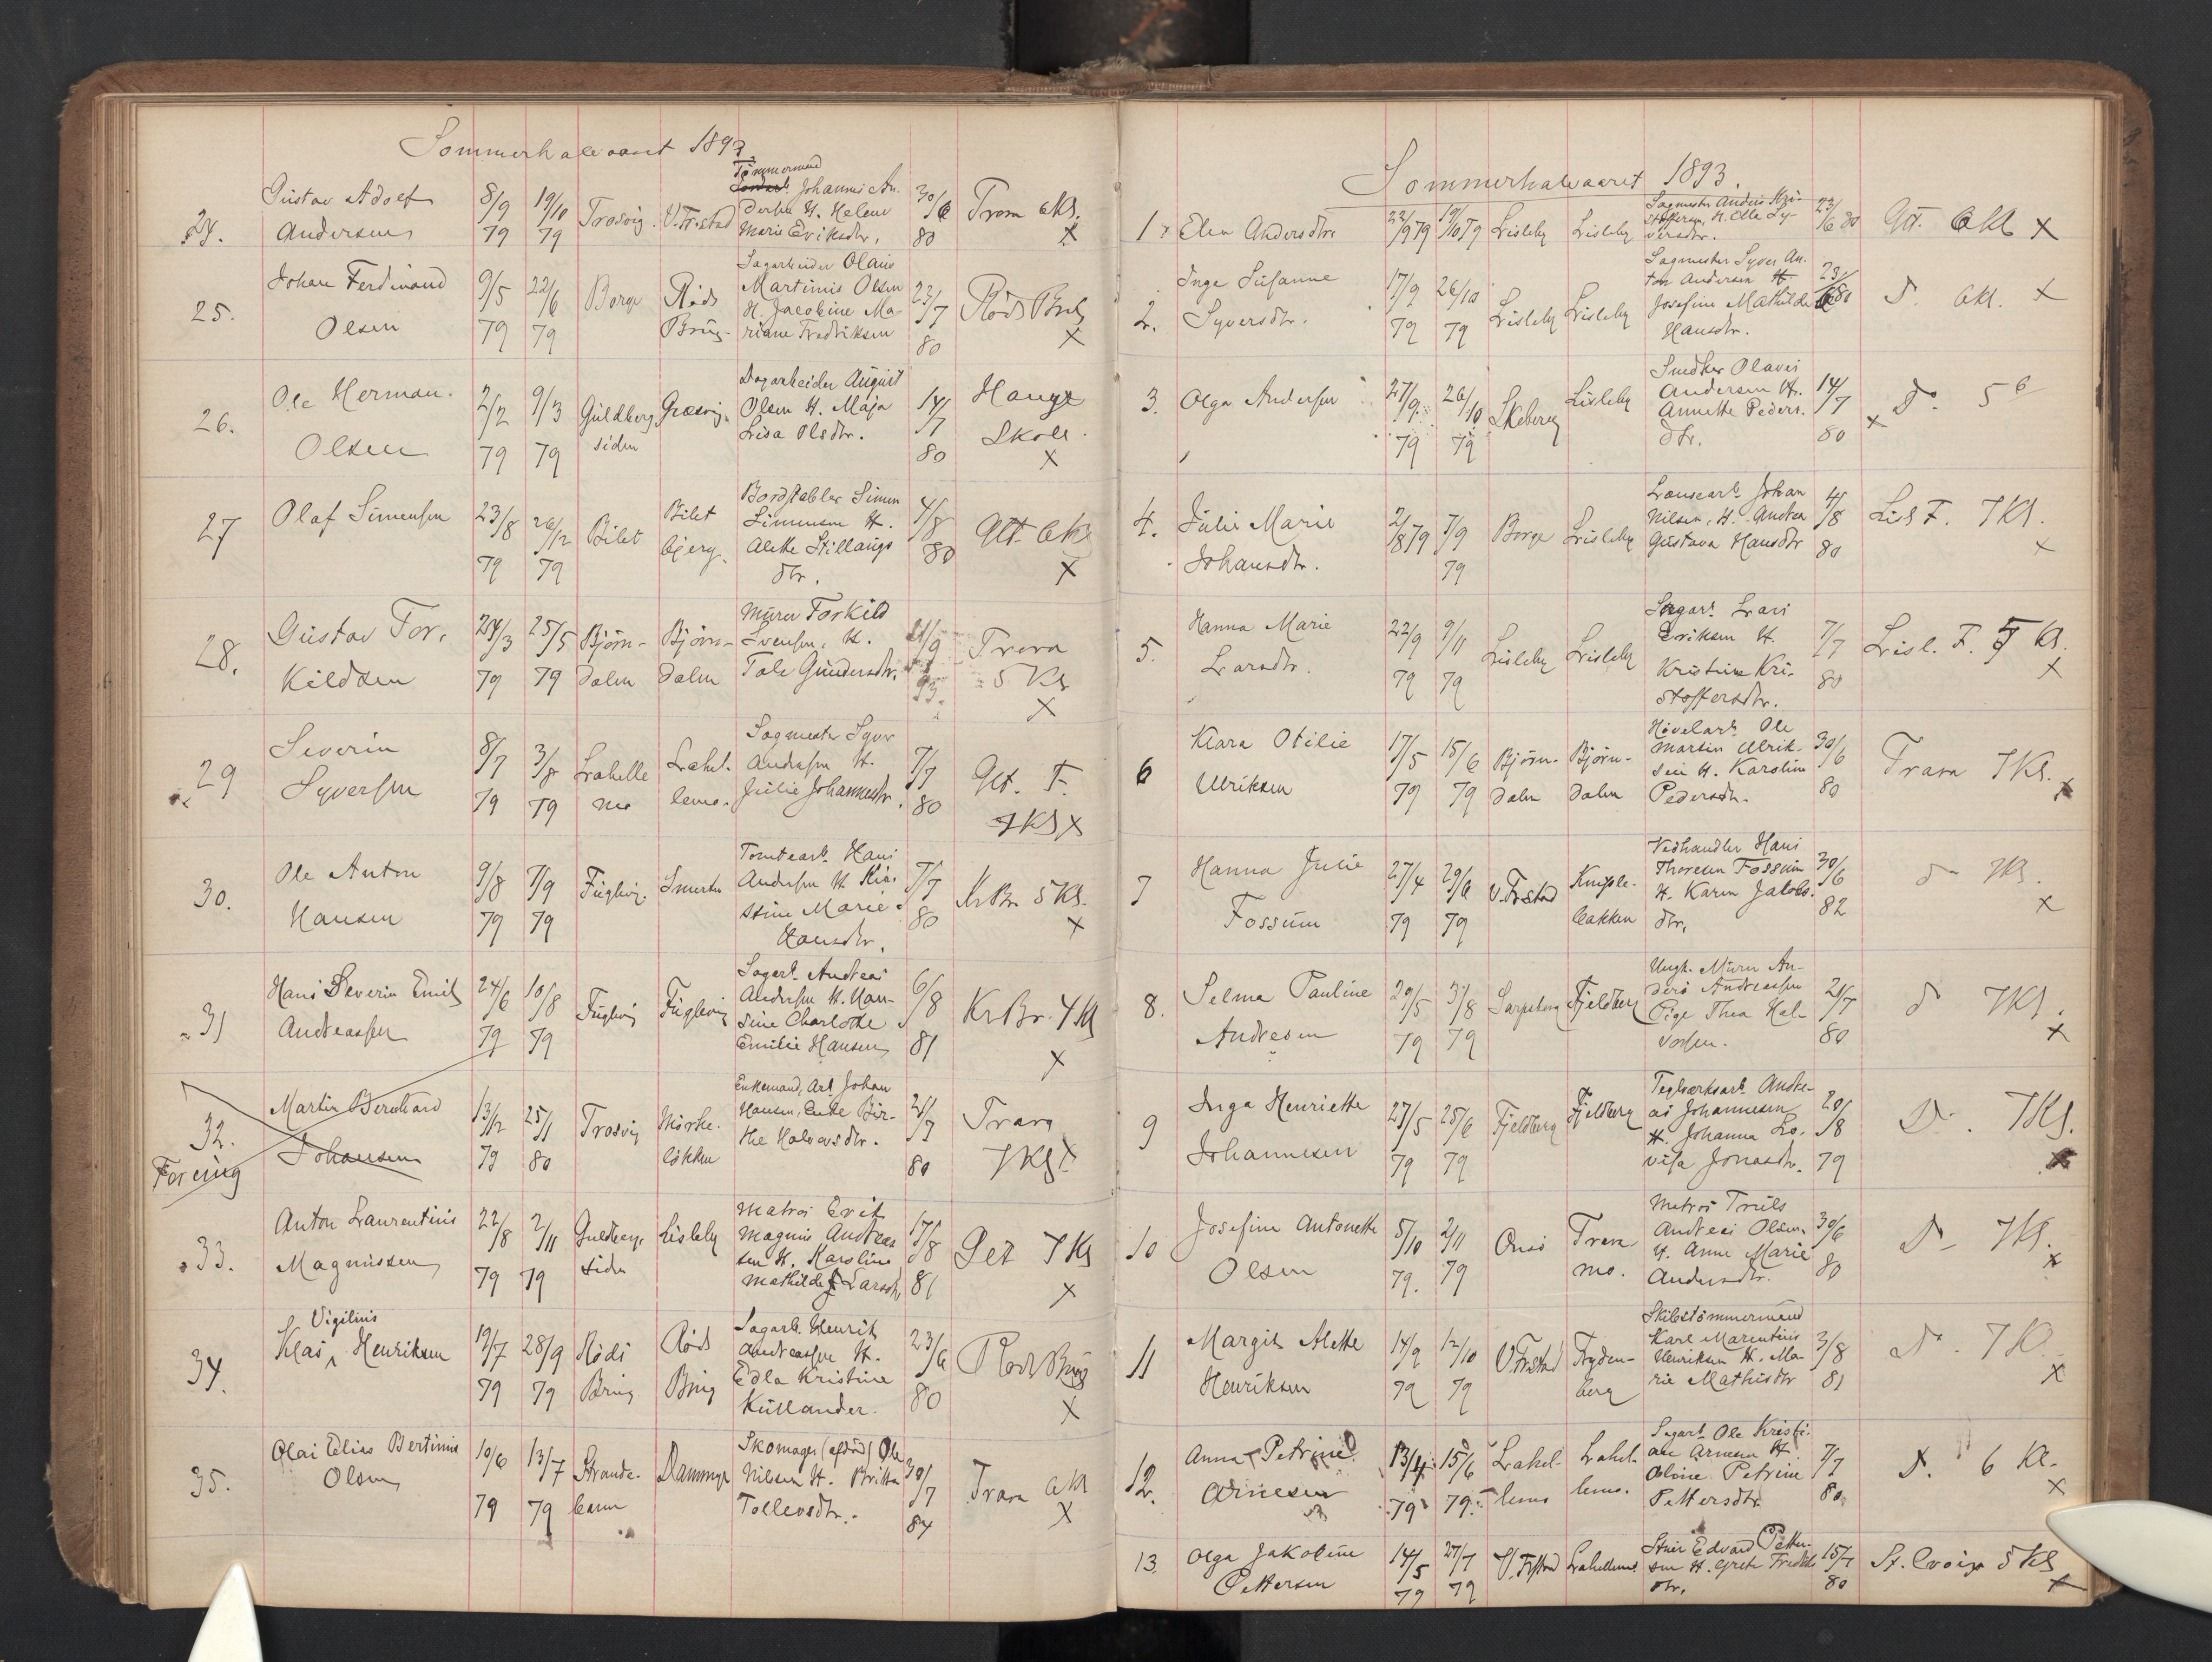 Sommerhalvaaret 1893.
24. Gustav Adolf Andersen 8/9 79 19/10 79 Trosvig V. Fr.stad Tömmermand Johannes An-
dersen H. Helene
Marie Eriksdtr. 30/6 80 Trara 6 Kl. X
25. Johan Ferdinand Olsen 9/5 79 22/6 79 Borge Röds Brug Sagarbeider Olaus
Martinus Olsen
H. Jacobine Ma-
riane Fredriksen 23/7 80 Röds Brug X
26. Ole Herman Olsen 2/2 79 9/3 79 Guldberg
siden Græsvig Dagarbeider August
Olsen H. Maja
Lisa Olsdtr. 14/7 80 Hauge
Skole X
27 Olaf Simensen 23/8 79 26/12 79 Bilet Bilet
bjerg. Bordstabler Simen
Simensen H.
Alette Stillaugs
dtr. 4/8 80 Glt. 6 Kl X
28. Gustav Tor-
Kildsen 24/3 79 25/5 79 Björn-
dalen Björn-
dalen Murer Torkild
Svensen, H.
Tale Gundersdtr. 21/9 93. Trara
5 Kl X
29 Severin
Syversen 8/7 79 3/8 79 Lahelle
mo Lahel-
lemo. Sagmester Syver
Andersen H.
Julie Johannesdtr. 7/7 80 Glt. F.
7 Kl X
30. Ole Anton
Hansen 9/8 79 7/9 79 Fuglevig. Smerten Tomtearb. Hans
Andersen H. Kir-
stine Marie
Hansdtr. 7/7 80 Kr. Br. 5 Kl. X
31 Hans Severin Emil
Andreassen 24/6 79 10/8 79 Fuglevig Fuglevig Sagarb. Andreas
Andersen H. Han-
sine Charlotte
Emilie Hansen 6/8 81 Kr. Br. 4 Kl X
32. Martin Bernhard
Johansen 13/12 79 25/1 80 Trosvig Mörke-
lökken Enkemand, Arb. Johan
Hansen, Enke Bir-
the Halvorsdtr. 21/7 80 Trara
7 Kl X
33. Anton Laurentius
Magnussen 22/8 79 2/11 79 Guldbergs
siden Lisleby Matros Erik
Magnus Andreas
sen H. Karoline
Mathilde Larsdtr. 17/8 81 7 Kl X
34. Klas Vigilius Henriksen 19/7 79 28/9 79 Röds
Brug Röds
Brug Sagarb. Henrik
Andreassen H.
Edla Kristine
Kullander. 23/6 80 Röds Brug X
35. Olai Elias Bertinius
Olsen 10/6 79 13/7 79 Strande-
barm Dammyr Skomager (afdöd) Ole
Nilsen H. Britta
Tollevsdtr. 30/7 84 Trara 6 Kl X
Sommerhalvaaret 1893.
1. Elen Andersdtr. 22/9 79 19/10 79 Lisleby Lisleby Sagmester Anders Kri-
stoffersen, H. Olle Sy-
versdtr. 23/6 80 Glt. 6 Kl X
2. Inga Susanne
Syversdtr. 17/9 79 26/10 79 Lisleby Lisleby Sagmester Syver An-
ton Andersen H.
Josefine Mathilde
Hansdtr. 23/6 80 D. 6 Kl. X
3. Olga Andersen 27/9 79 26/10 79 Skeberg Lisleby Snedker Olaves
Andersen H.
Annette Peders-
dtr. 14/7 80 Do. 5 X
4. Julie Marie
Johansdtr. 2/8 79 7/9 79 Borge Lisleby Lansearb. Johan
Nilsen, H. Andrea
Gustava Hansdtr 4/8 80 Lisl. F. 7 Kl. X
5. Hanna Marie
Larsdtr. 22/9 79 9/11 79 Lisleby Lisleby Sagarb. Lars
Eriksen H.
Kristine Kri-
stoffersdtr. 7/7 80 Lisl. F. 7 Kl. X
6 Klara Otilie
Ulriksen 17/5 79 15/6 79 Björn-
dalen Björn-
dalen Hövelarb. Ole
Martin Ulrik-
sen H. Karoline
Pedersdtr. 30/6 80 Trara 7 Kl. X
7 Hanna Julie
Fossum 27/4 79 29/6 79 V. Fr.stad Kniple-
bakken Vedhandler Hans
Thoresen Fossum
H. Karen Jakobs-
dtr. 30/6 82 do 7 Kl. X
8. Selma Pauline
Andresen 29/5 79 3/8 79 Sarpsborg Fjeldberg Ungk. Murer An-
ders Andreassen
Pige Thea Hal-
vorsen. 21/7 80 do 7 Kl. X
9 Inga Henriette
Johannesen 27/5 79 25/6 79 Fjeldberg Fjeldberg Teglverksarb. Andre-
as Johannesen
H. Johanna Lo-
visa Jonasdtr. 20/8 79 Do. 7 Kl. X
10 Josefine Antonette
Olsen 5/10 79. 2/11 79 Onsö Trara
mo. Matros Truls
Andreas Olsen
H. Anne Marie
Andersdtr. 30/6 80 Do 7 Kl. X
11 Margit Alette
Henriksen 14/9 79 12/10 79 V. Fr.stad Fryden-
berg Skibstömmermand
Karl Marentius
Henriksen H. Ma-
rie Mathisdtr 3/8 81 Do. 7 Kl. X
12. Anna Petrine
Arnesen 13/4 79 15/6 79. Lahel-
lemo Lahel-
lemo. Sagarb. Ole Kristi-
an Arnesen H.
Oline Petrine
Pettersdtr. 7/7 80 D. 6 Kl. X
13. Olga Jakobine
Pettersen 14/5 79 27/7 79 V. Fr.stad Lahellemo Stuer Edvard Petter-
sen H. Grete Fredriks
dtr. 15/7 80 St. Croix 5 Kl X